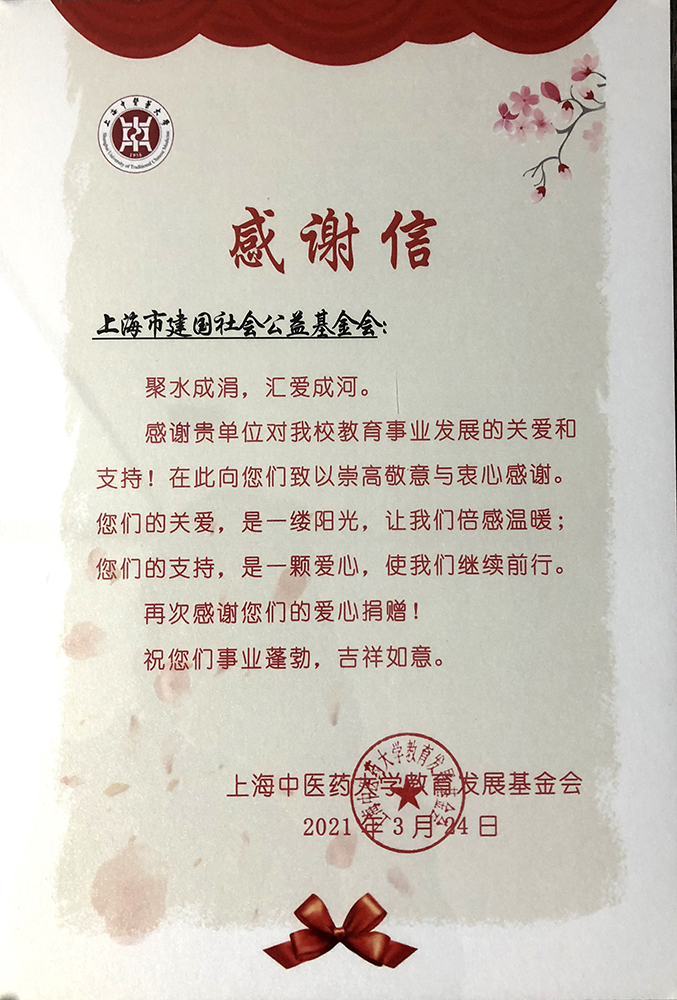 上海中医药大学
Shanghai University of Traditional Chinese Medicine
感谢信
上海市建国社会公益基金会:
聚水成涓，汇爱成河。
感谢贵单位对我校教育事业发展的关爱和
支持！在此向您们致以崇高敬意与衷心感谢。
您们的关爱，是一缕阳光，让我们倍感温暖；
您们的支持，是一颗爱心，使我们继续前行。
再次感谢您们的爱心捐赠！
祝您们事业蓬勃，吉祥如意。
上海中医药大学教育发展基金会
上海中医药大学教育发展基金会
2021年3月24日